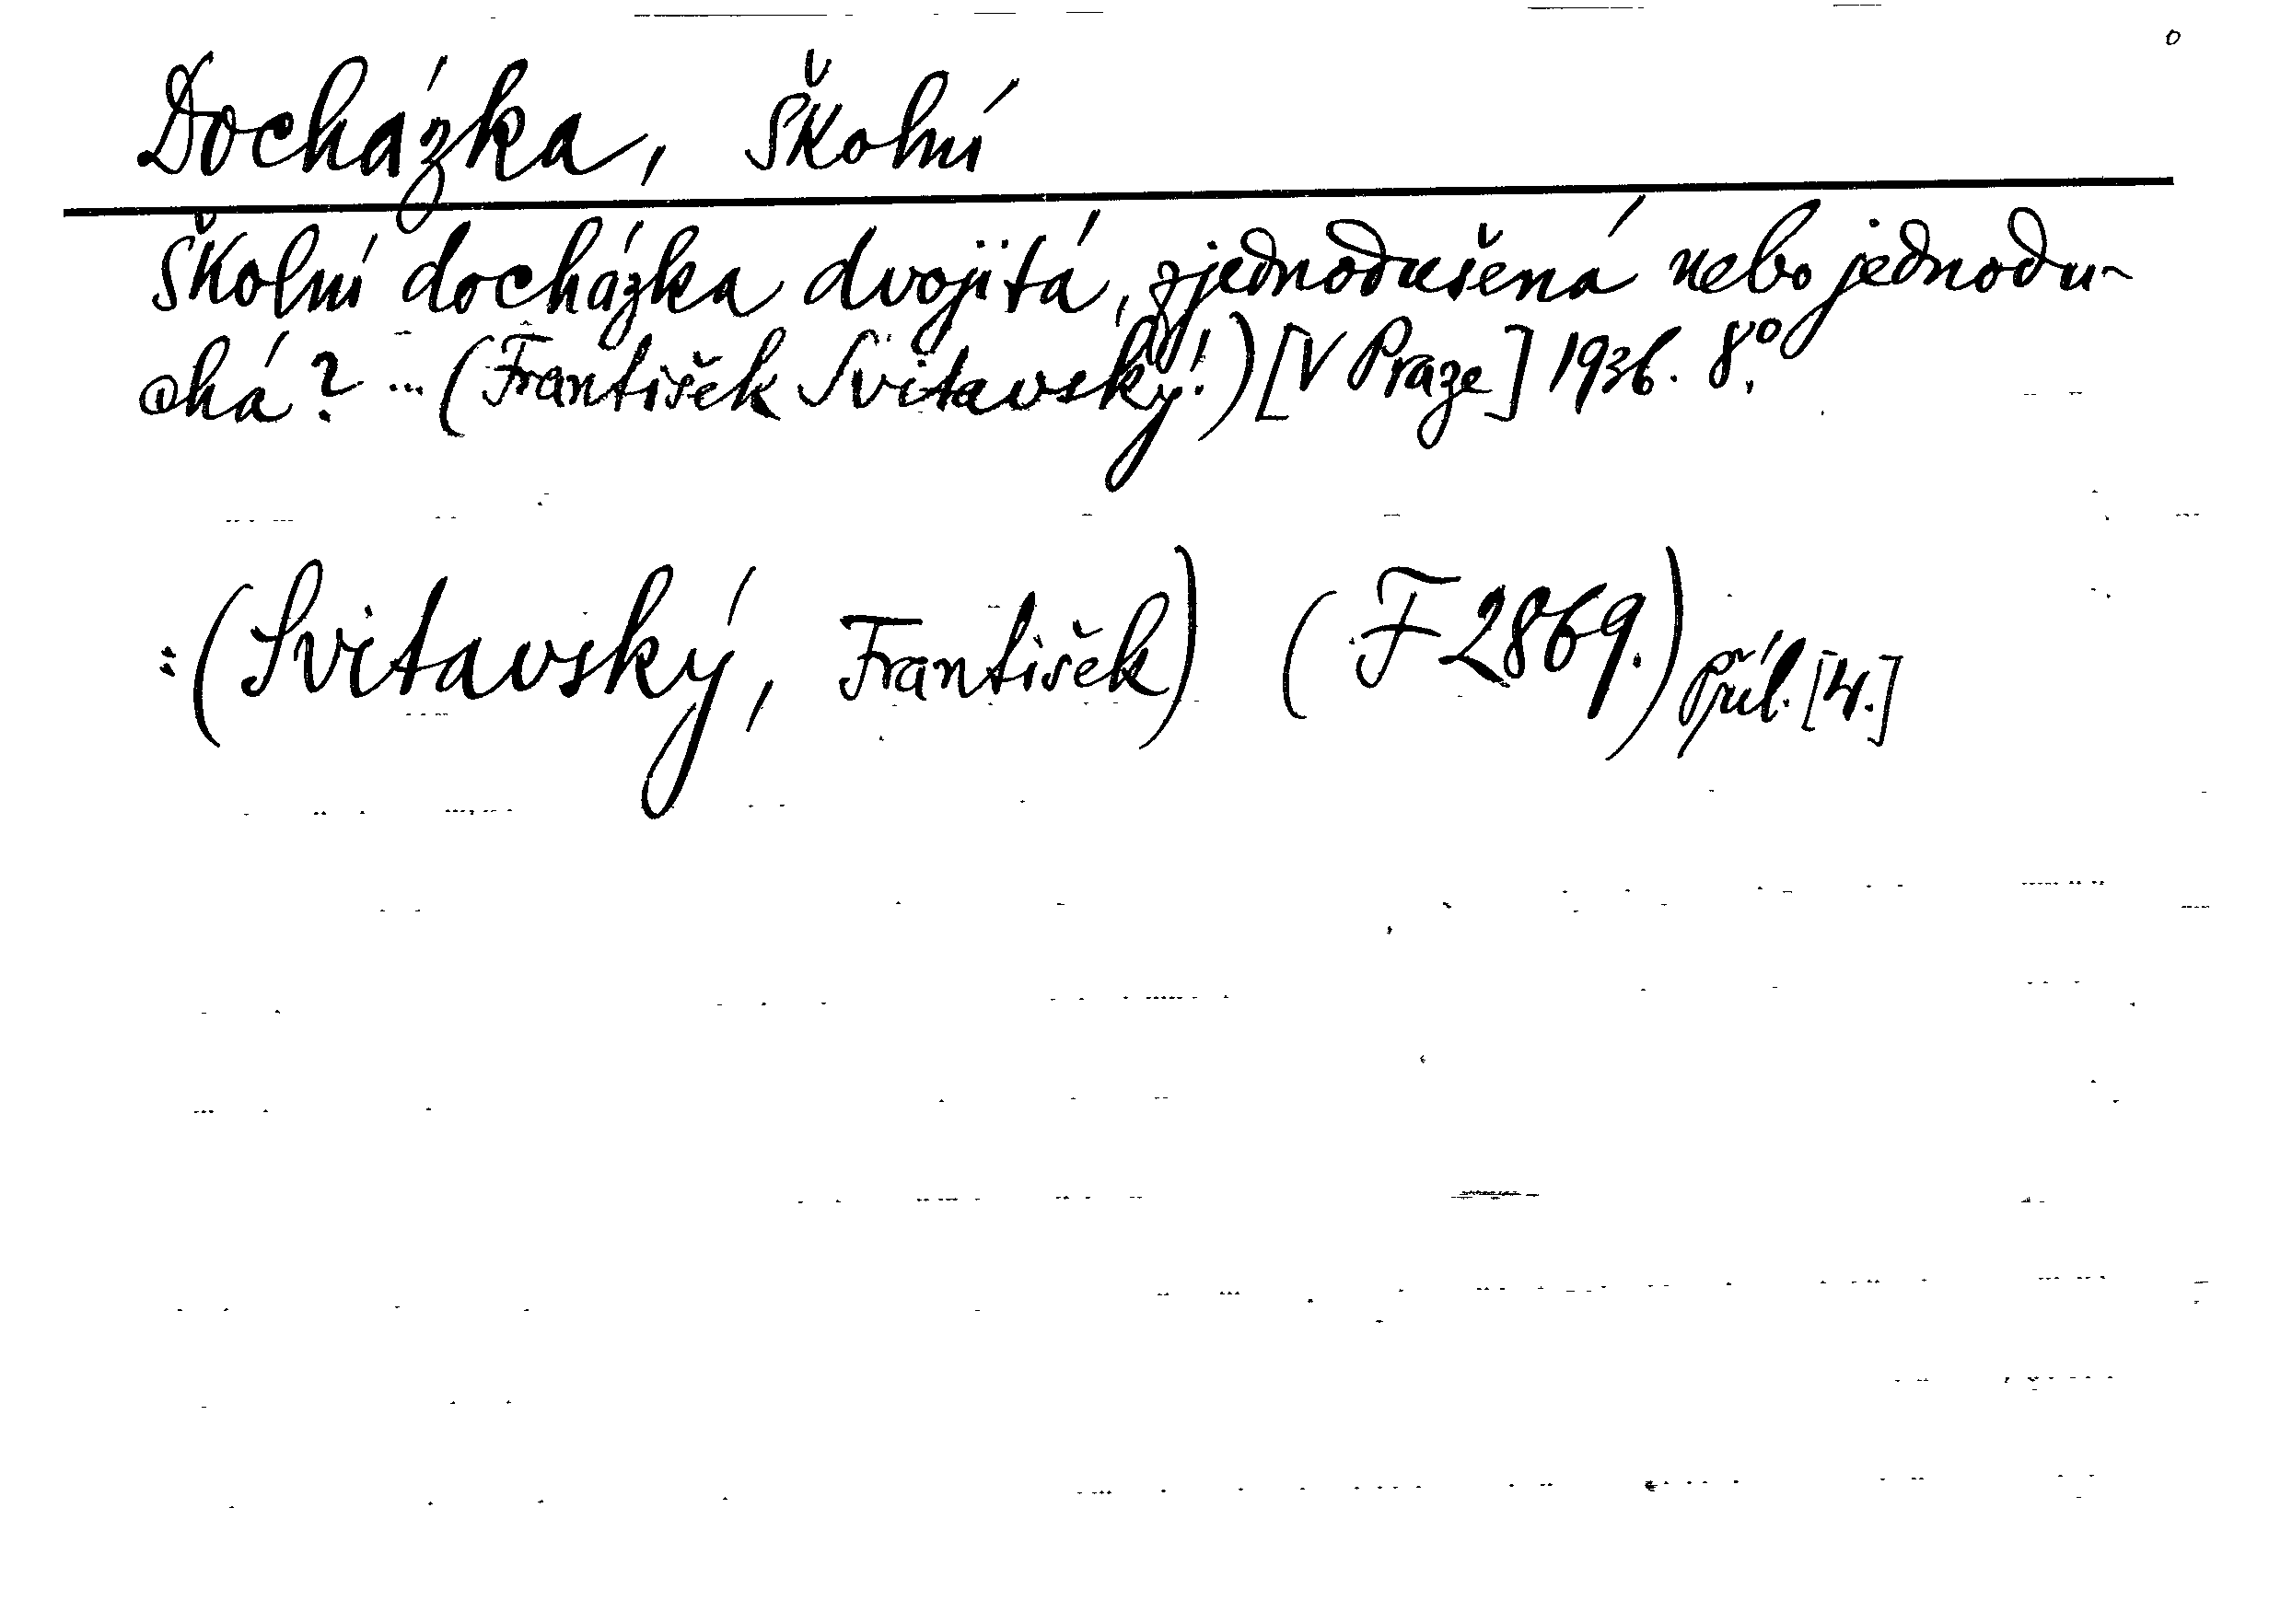 Docházka, školní
Školní docházka dvojitá, zjednodušená nebo jednodu-
chá? ... (František Svitavský.) [V Praze] 1936. 8°.
: (Svitavský, František) (F 2869.) Příl. [4.]